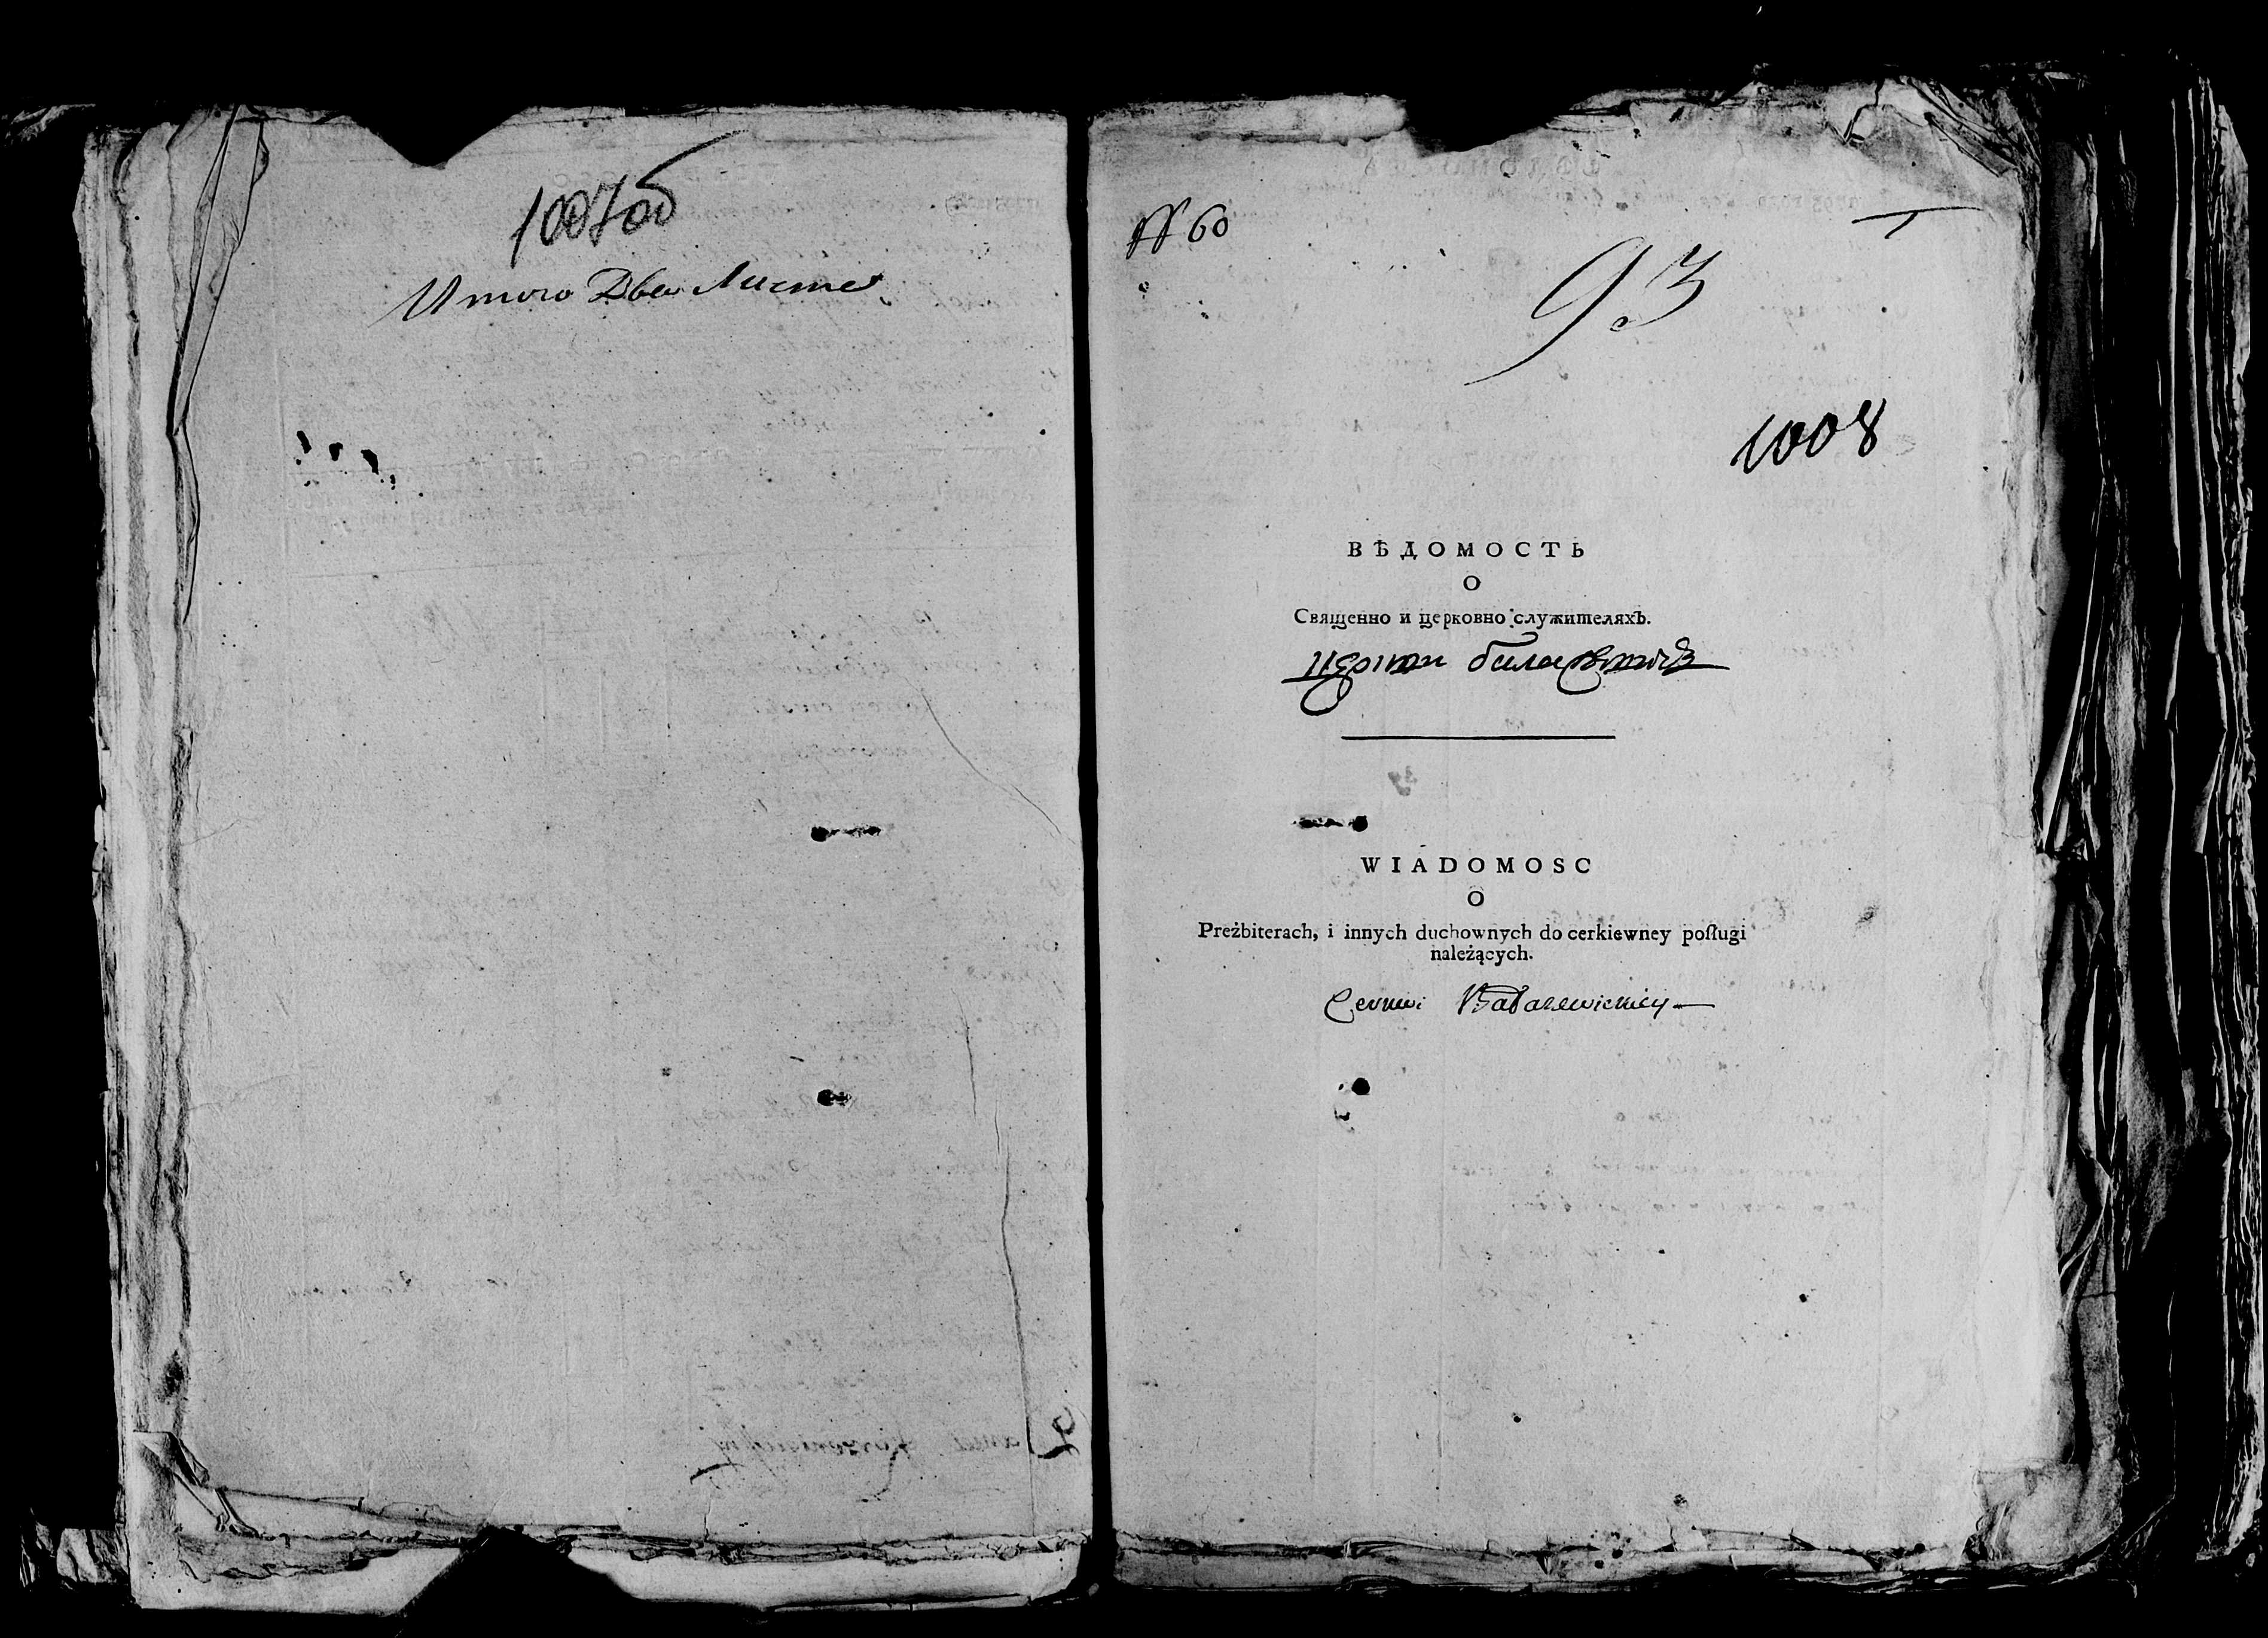 1007об
Итого Два Листа
№ 60
93
1008
ВѢДОМОСТЬ
О
Священно и церковно служителяхъ.
WIADOMOSC
O
Preżbiterach, i innych duchownych do cerkiewney poſługi
należących.
Cerkwi